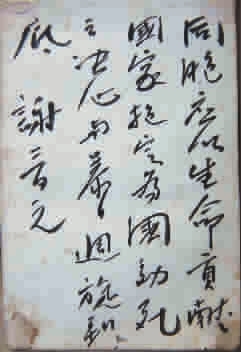 同胞應以生命貢獻
國家抱定為國効死
之决心與暴日週旋到
底 謝晉元